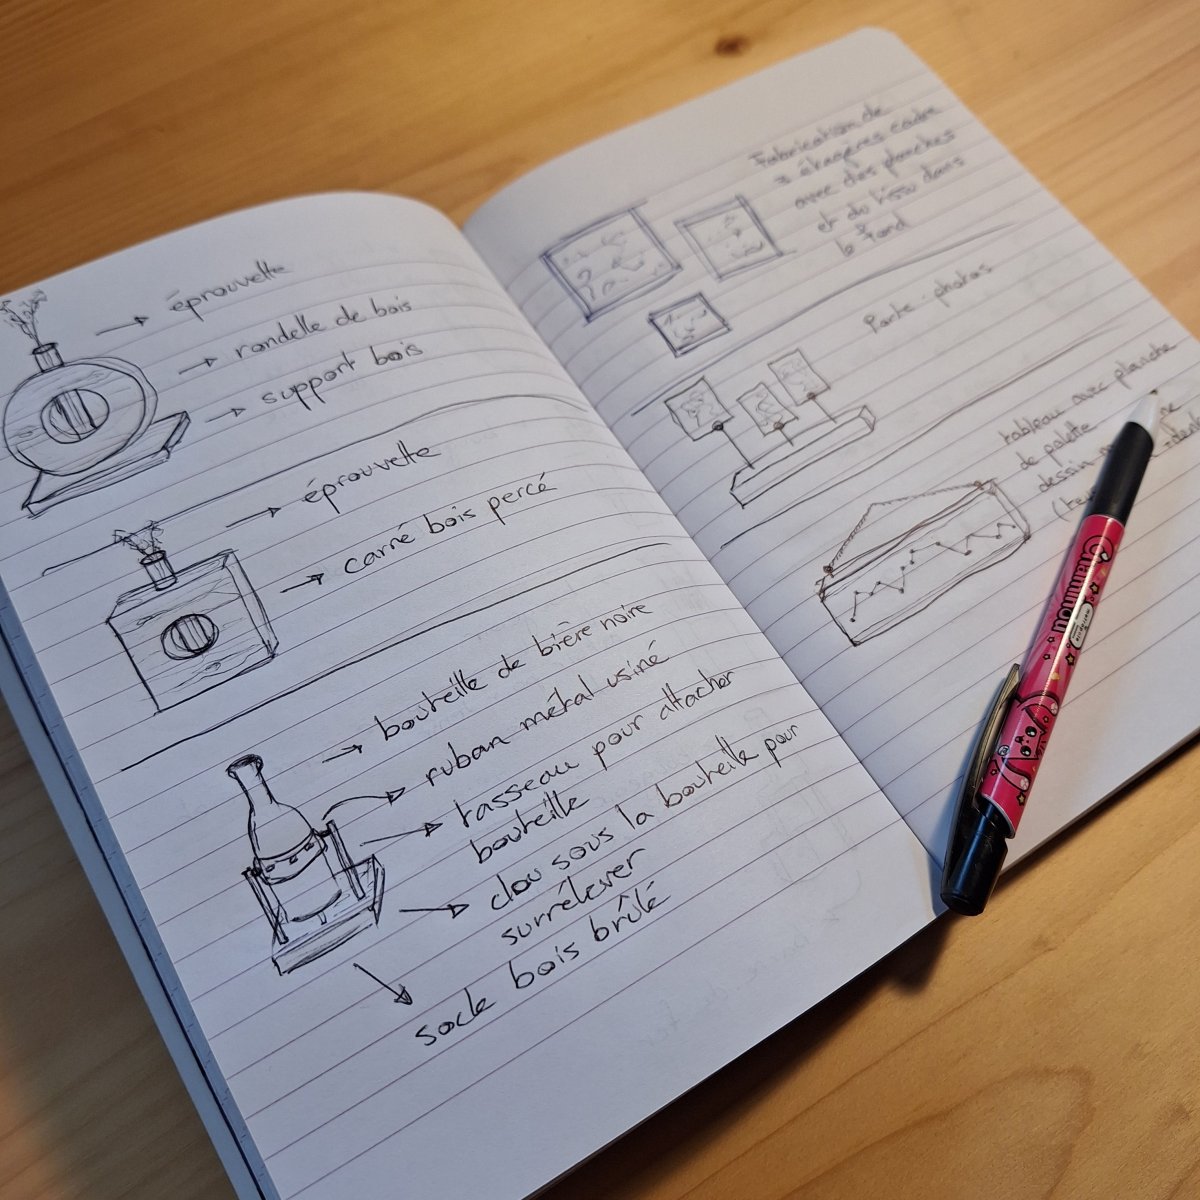 éprouvette
rondelle de bois
support bois
éprouvette
carré bois percé
bouteille de bière noire
ruban métal usiné
tasseau pour attacher
bouteille
clou sous la bouteille pour
surrélever
socle bois brûlé
Fabrication de
3 étagères cadre
avec des planches
et du tissu dans
le fond
Porte-photos
tableau avec planche
de palette
dessin